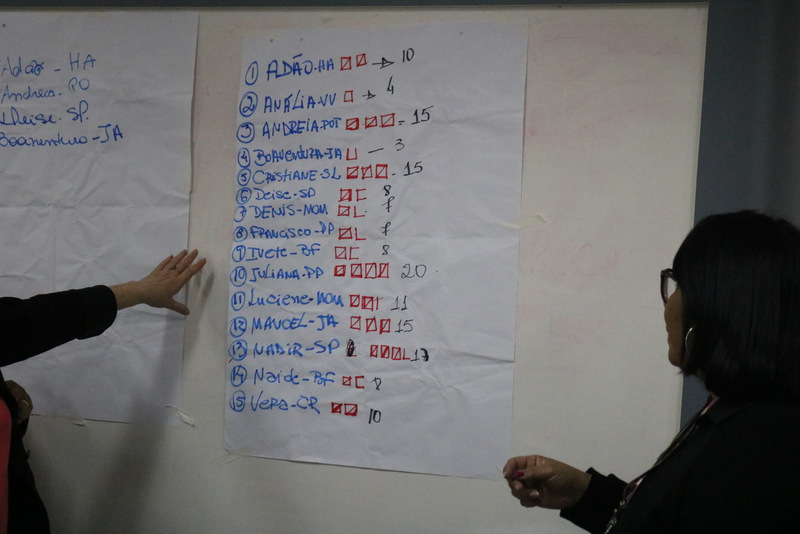 Adão - HA
Andreia. PO
Deise. SP.
Boaventura - JA
1 ADÃO.HA → 10
2 ANÁLIA.VV → 4
3 ANDREIA.POT = 15
4 BOAVENTURA-JA — 3
5 CRISTIANE-SL - 15
6 Deise.SP 8
7 DENIS-MOM 7
8 FRANCISCO-PP 7
9 Ivete-BF 8
10 JULIANA.PP 20
11 Luciene-MOM 11
12 MANOEL-JA 15
13 NADIR-SP 17
14 Naide-BF 8
15 VERA-CR 10